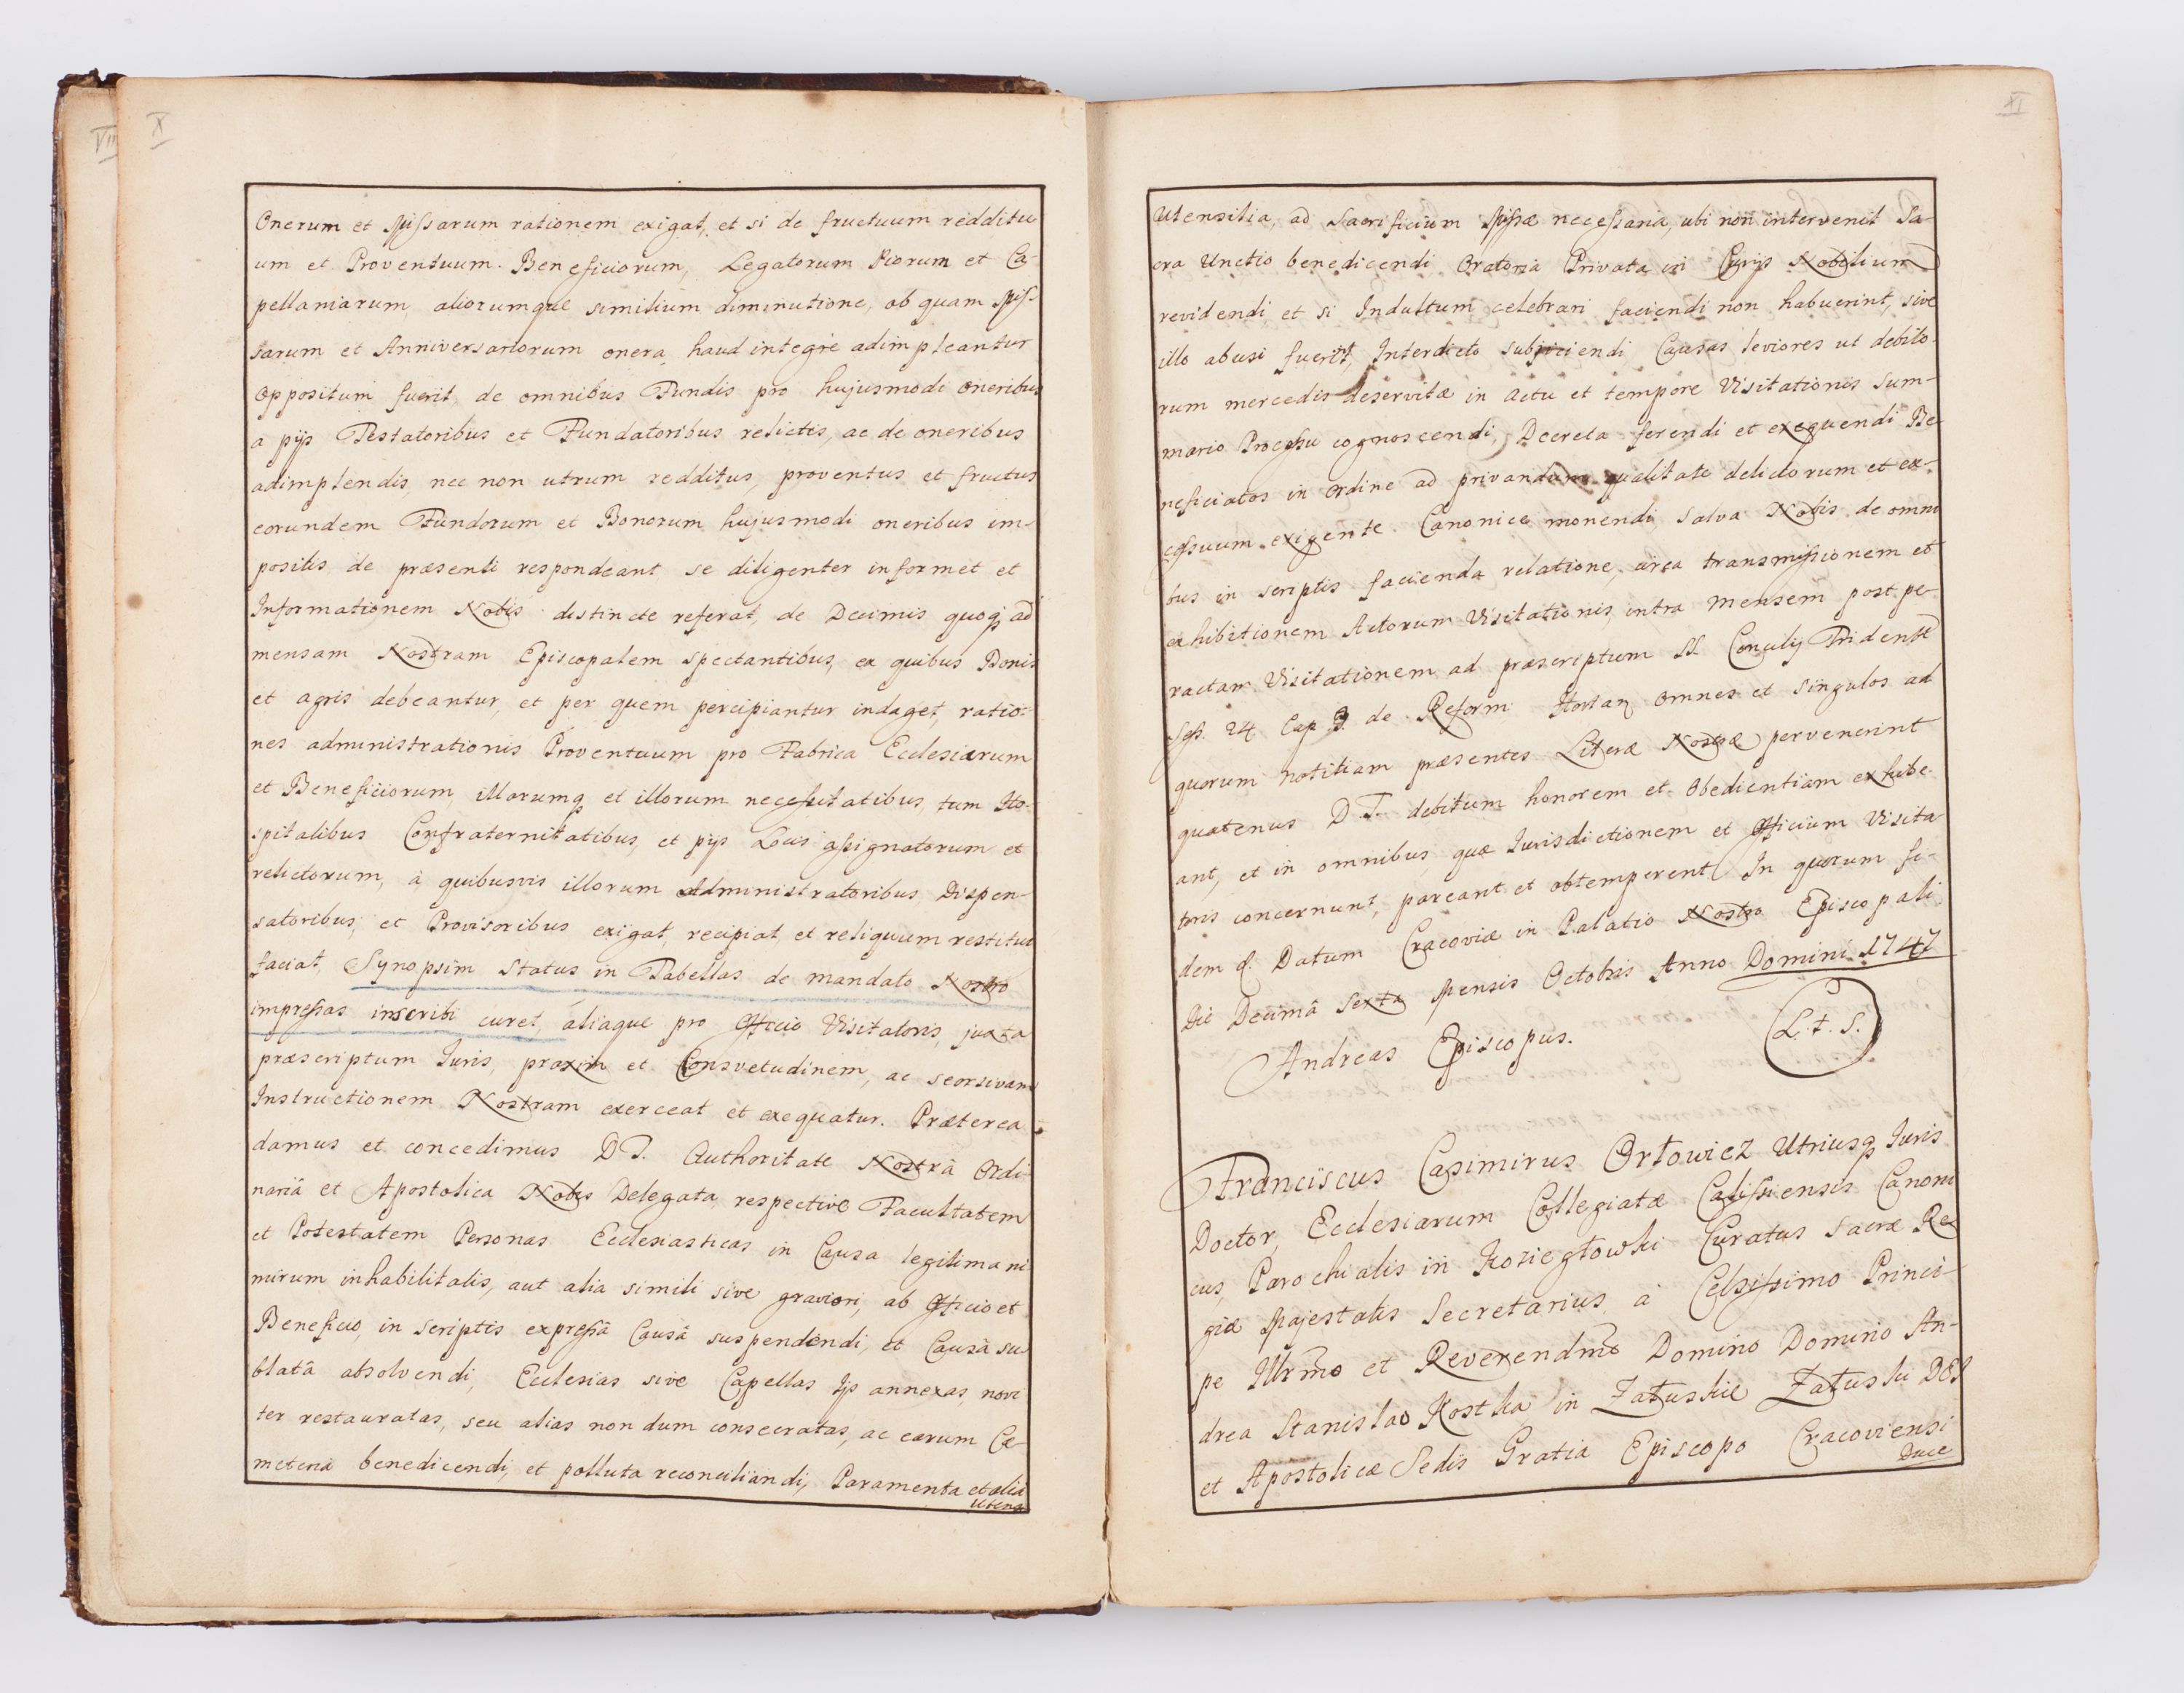 VII
X
Onerum et Missarum rationem exigat, et si de fructuum redditu
um et Proventuum. Beneficiorum, Legatorum Piorum et Ca-
pellaniarum aliorumque similium diminutione, ob quam Mis-
sarum et Anniversariorum onera haud integre adimpleantur
oppositum fuerit de omnibus Fundis pro hujusmodi oneribus
a pijs Testatoribus et Fundatoribus relictis, ac de oneribus
adimplendis, nec non utrum redditus, proventus et fructus
eorundem Fundorum et Bonorum hujusmodi oneribus im-
positis de præsenti respondeant se diligenter informet et
Informationem Nobis distincte referat, de Decimis quoq ad
mensam Nostram Episcopalem spectantibus, ex quibus Bonis
et agris debeantur, et per quem percipiantur indaget, ratio-
nes administrationis Proventuum pro Fabrica Ecclesiarum
et Beneficiorum, illorumq et illorum necessitatibus, tum Ho-
spitalibus Confraternitatibus, et pijs Locis assignatorum et
relictorum, à quibusvis illorum Administratoribus Dispen-
satoribus, et Provisoribus exigat, recipiat, et reliquum restitui
faciat, Synopsim Status in Tabellas de mandato Nostro
impressas inscribi curet, aliaque pro Officio Visitatoris, juxta
præscriptum Juris, praxim et Consvetudinem, ac seorsivam
Instructionem Nostram exerceat et exequatur. Præterea
damus et concedimus D T. Authoritate Nostrâ Ordi-
nariâ et Apostolica Nobis Delegata respective Facultatem
et Potestatem Personas Ecclesiasticas in Causa legitima ni
mirum inhabilitatis, aut alia simili sive graviori, ab Officio et
Beneficio, in scriptis expressâ Causâ suspendendi, et Causâ su
blatâ absolvendi, Ecclesias sive Capellas Ijs annexas, novi
ter restauratas, seu alias non dum consecratas, ac earum Cæ-
meteria benedicendi, et polluta reconciliandi, Paramenta et alia
Utens
XI
Utensilia, ad Sacrificium Missæ necessaria, ubi non intervenit Sa-
cra Unctio benedicendi Oratoria Privata in Curijs Nobilium
revidendi, et si Indultum celebrari faciendi non habuerint, sive
illo abusi fuerint, Interdicto subjiciendi Causas leviores ut debito-
rum mercedis deservitæ in Actu et tempore Visitationis Sum-
mario Processu cognoscendi, Decreta ferendi et exequendi Be-
neficiatos in ordine ad privandum qualitate delictorum et ex-
cessuum exigente Canonice monendi, salva Nobis de omni
bus in scriptis facienda relatione, circa transmissionem et
exhibitionem Actorum Visitationis, intra Mensem post pe-
ractam Visitationem ad præscriptum SS. Concilij Trident
Sess. 24 Cap 3. de Reform Hortam Omnes et Singulos ad
quorum notitiam præsentes Literæ Nostræ pervenerint
quatenus D T. debitum honorem et Obedientiam exhibe-
ant, et in omnibus, quæ Jurisdictionem et Officium Visita
toris concernunt, pareant et obtemperent. In quorum fi-
dem &. Datum Cracoviæ in Palatio Nostro Episcopali
Die Decimâ Sexta Mensis Octobris Anno Domini 1747
Andreas Episcopus. L. +. S.
Franciscus Casimirus Orłowicz Utriusq Juris
Doctor, Ecclesiarum Collegiatæ Calissiensis Canoni
cus, Parochialis in Koziegłowki Curatus Sacræ Re
giæ Majestatis Secretarius, à Celsissimo Princi-
pe Illrmo et Reverendmo Domino Domino An-
drea Stanislao Kostka in Załuskie Załuski DEI
et Apostolicæ Sedis Gratia Episcopo Cracoviensi
Duce